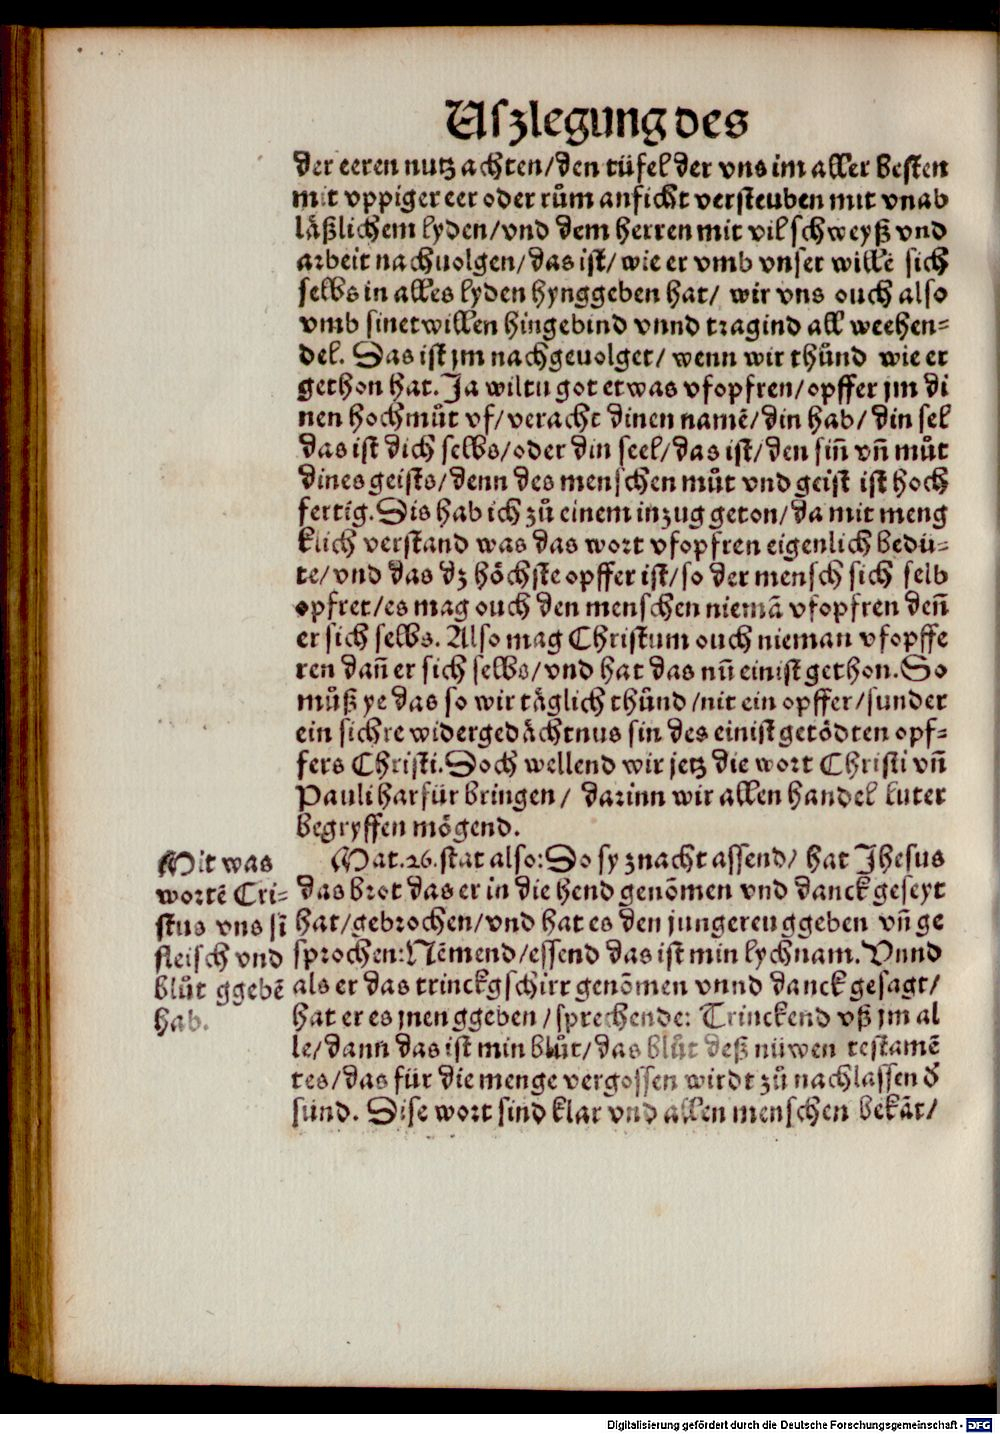 Uſzlegung des
der eeren nutz achten/den tüfel der vns im aller beſten
mit vppiger eer oder rům anficht verſteuben mit vnab
läßlichem lyden/vnd dem herren mit vil ſchweyß vnd
arbeit nachuolgen/das iſt/wie er vmb vnſer willē ſich
ſelbs in alles lyden hynggeben hat/ wir vns ouch alſo
vmb ſinetwillen hingebind vnnd tragind all weehen-
del. Das iſt jm nachgeuolget/ wenn wir thůnd wie er
gethon hat. Ja wiltu got etwas vfopfren/opffer jm di
nen hochmůt vf/veracht dinen namē/din hab/din ſel
das iſt dich ſelbs/oder din seel/das iſt/den ſiñ vñ můt
dines geiſts/denn des menſchen můt vnd geiſt iſt hoch
fertig. Dis hab ich zů einem inzug geton/da mit meng
klich verſtand was das wort vfopfren eigenlich bedü-
te/vnd das dz höchſte opffer iſt/ſo der menſch ſich ſelb
opfret/es mag ouch den menſchen niemā vfopfren deñ
er ſich ſelbs. Alſo mag Chriſtum ouch nieman vfopffe
ren dañ er ſich ſelbs/vnd hat das nū einiſt gethon. So
můß ye das ſo wir täglich thůnd/nit ein opffer/ſunder
ein ſichre widergedächtnus ſin des einiſt getödten opf-
fers Chriſti. Doch wellend wir jetz die wort Chriſti vñ
Pauli harfür bringen/ darinn wir allen handel luter
begryffen mögend.
Mat.26.ſtat alſo: Do ſy znacht aſſend/ hat Jheſus
das brot das er in die hend genōmen vnd danck geſeyt
hat/gebrochen/vnd hat es den jungeren ggeben vñ ge
ſprochen: Nēmend/eſſend das iſt min lychnam. Vnnd
als er das trinckgſchirr genōmen vnnd danck geſagt/
hat er es jnen ggeben/ſprechende: Trinckend vß jm al
le/dann das iſt min blůt/das blůt deß nüwen teſtamē
tes/das für die menge vergoſſen wirdt zů nachlaſſen d̕
ſünd. Diſe wort ſind klar vnd allen menſchen bekāt/
Mit was
wortē Cri-
ſtus vns ſī
fleiſch vnd
blůt ggebē
hab.
Digitalisierung gefördert durch die Deutsche Forschungsgemeinschaft - DFG